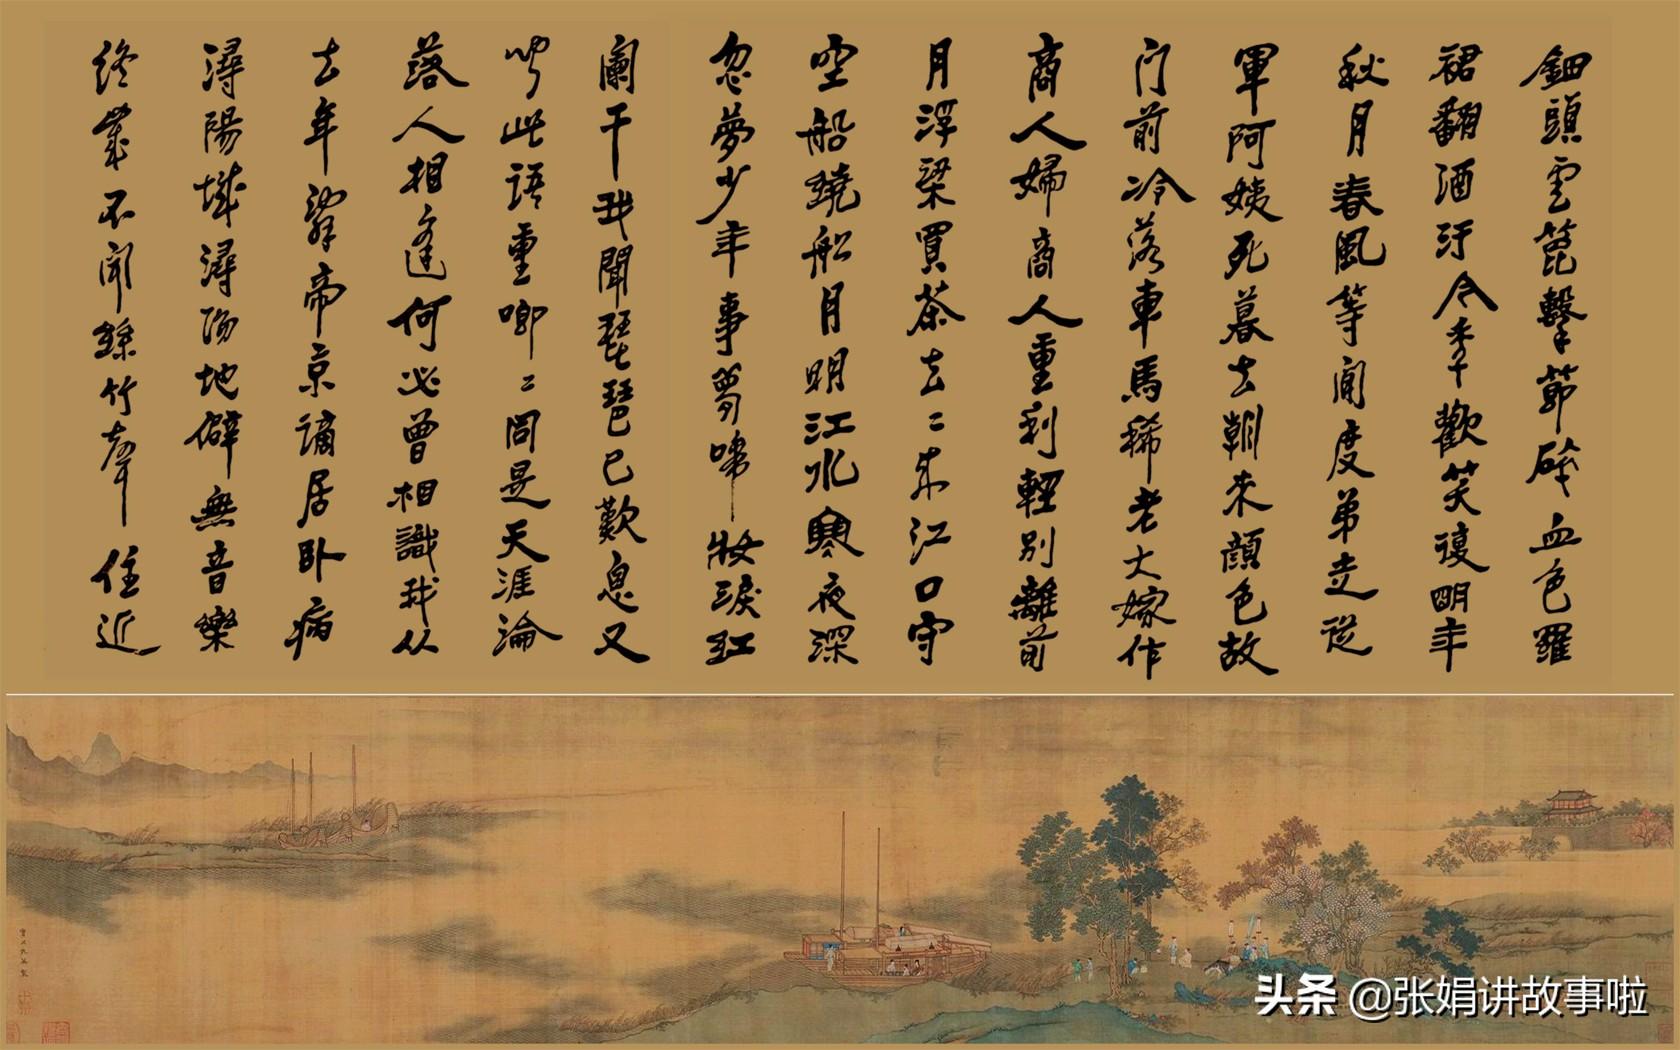 鈿頭雲篦擊節碎血色羅
裙翻酒汙今秊歡笑復明年
秋月春風等閒度弟走從
軍阿姨死暮去朝来顏色故
门前冷落車馬稀老大嫁作
商人婦商人重利輕別離前
月浮梁買茶去〻来江口守
空船繞船月明江水寒夜深
忽夢少年事夢啼妝淚紅
闌干我聞琵琶已歎息又
聞此語重唧〻同是天涯淪
落人相逢何必曾相識我从
去年辭帝京謫居卧病
潯陽城潯陽地僻無音樂
終歲不聞絲竹聲住近
头条 @张娟讲故事啦